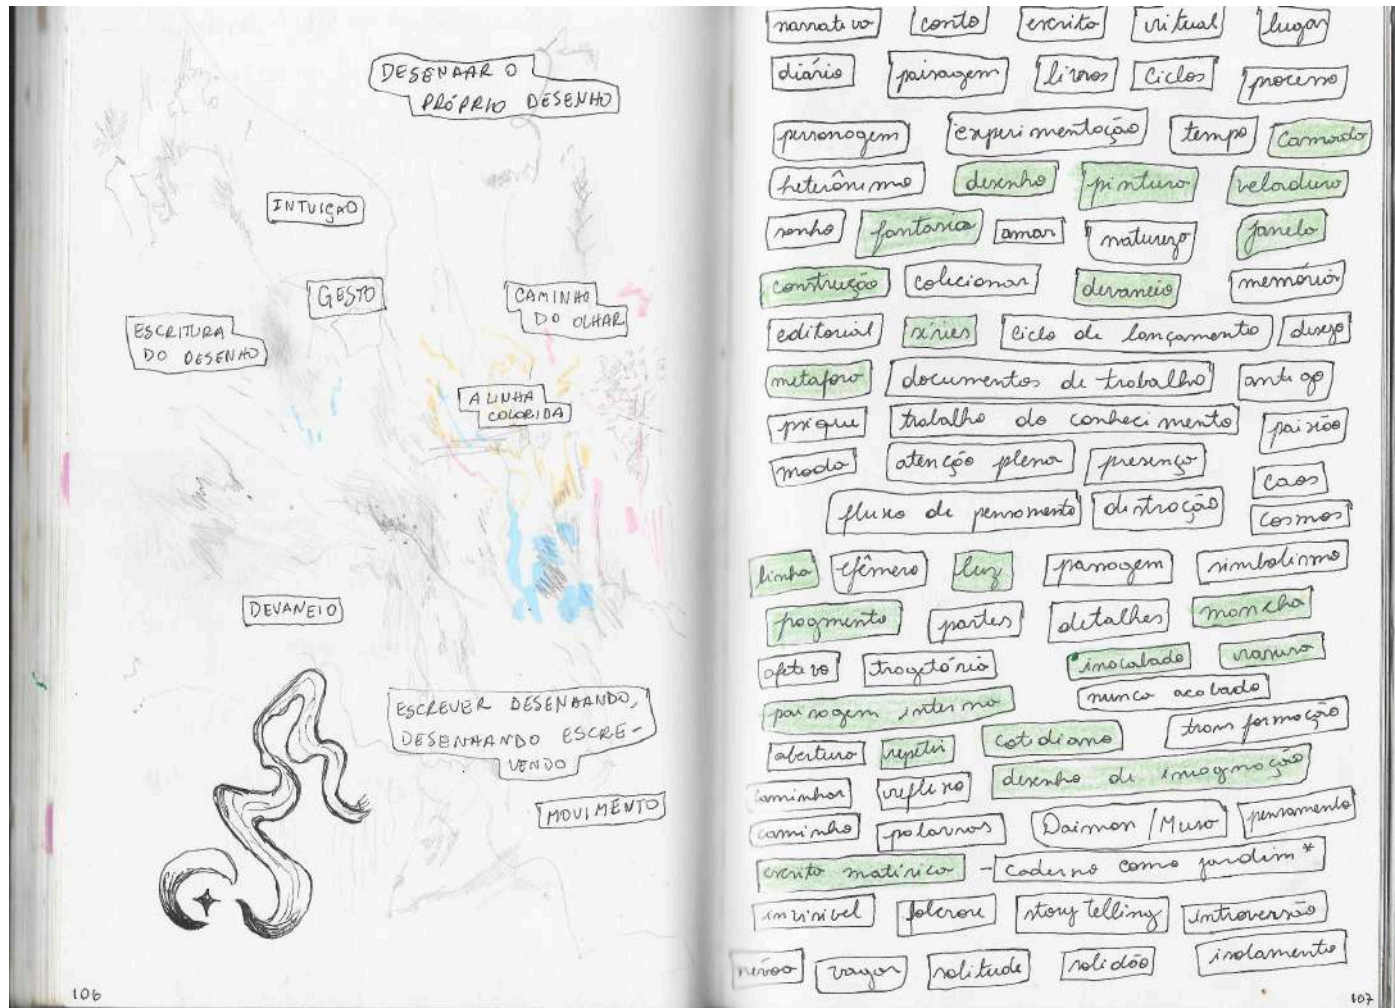 DESENHAR O
PRÓPRIO DESENHO
INTUIÇÃO
GESTO
CAMINHO
DO OLHAR
ESCRITURA
DO DESENHO
A LINHA
COLORIDA
DEVANEIO
ESCREVER DESENHANDO,
DESENHANDO ESCRE-
VENDO
MOVIMENTO
106
narrativa conto escrita virtual lugar
diário paisagem livros ciclos processo
personagem experimentação tempo camada
heterônimo desenho pintura veladura
sonho fantasia amar natureza janela
construção colecionar devaneio memória
editorial séries ciclo de lançamento desejo
metáfora documentos de trabalho antigo
psique trabalho do conhecimento paixão
moda atenção plena presença
caos
fluxo de pensamento distração cosmos
linha efêmero luz passagem simbolismo
fragmento partes detalhes mancha
afetivo trajetória inacabado rasura
paisagem interna nunca acabado
abertura repetir cotidiano transformação
caminhar reflexo desenho de imaginação
caminho palavras Daimon/Musa pensamento
escrita matérica - caderno como jardim*
invisível folclore storytelling introversão
névoa vagar solitude solidão isolamento
107